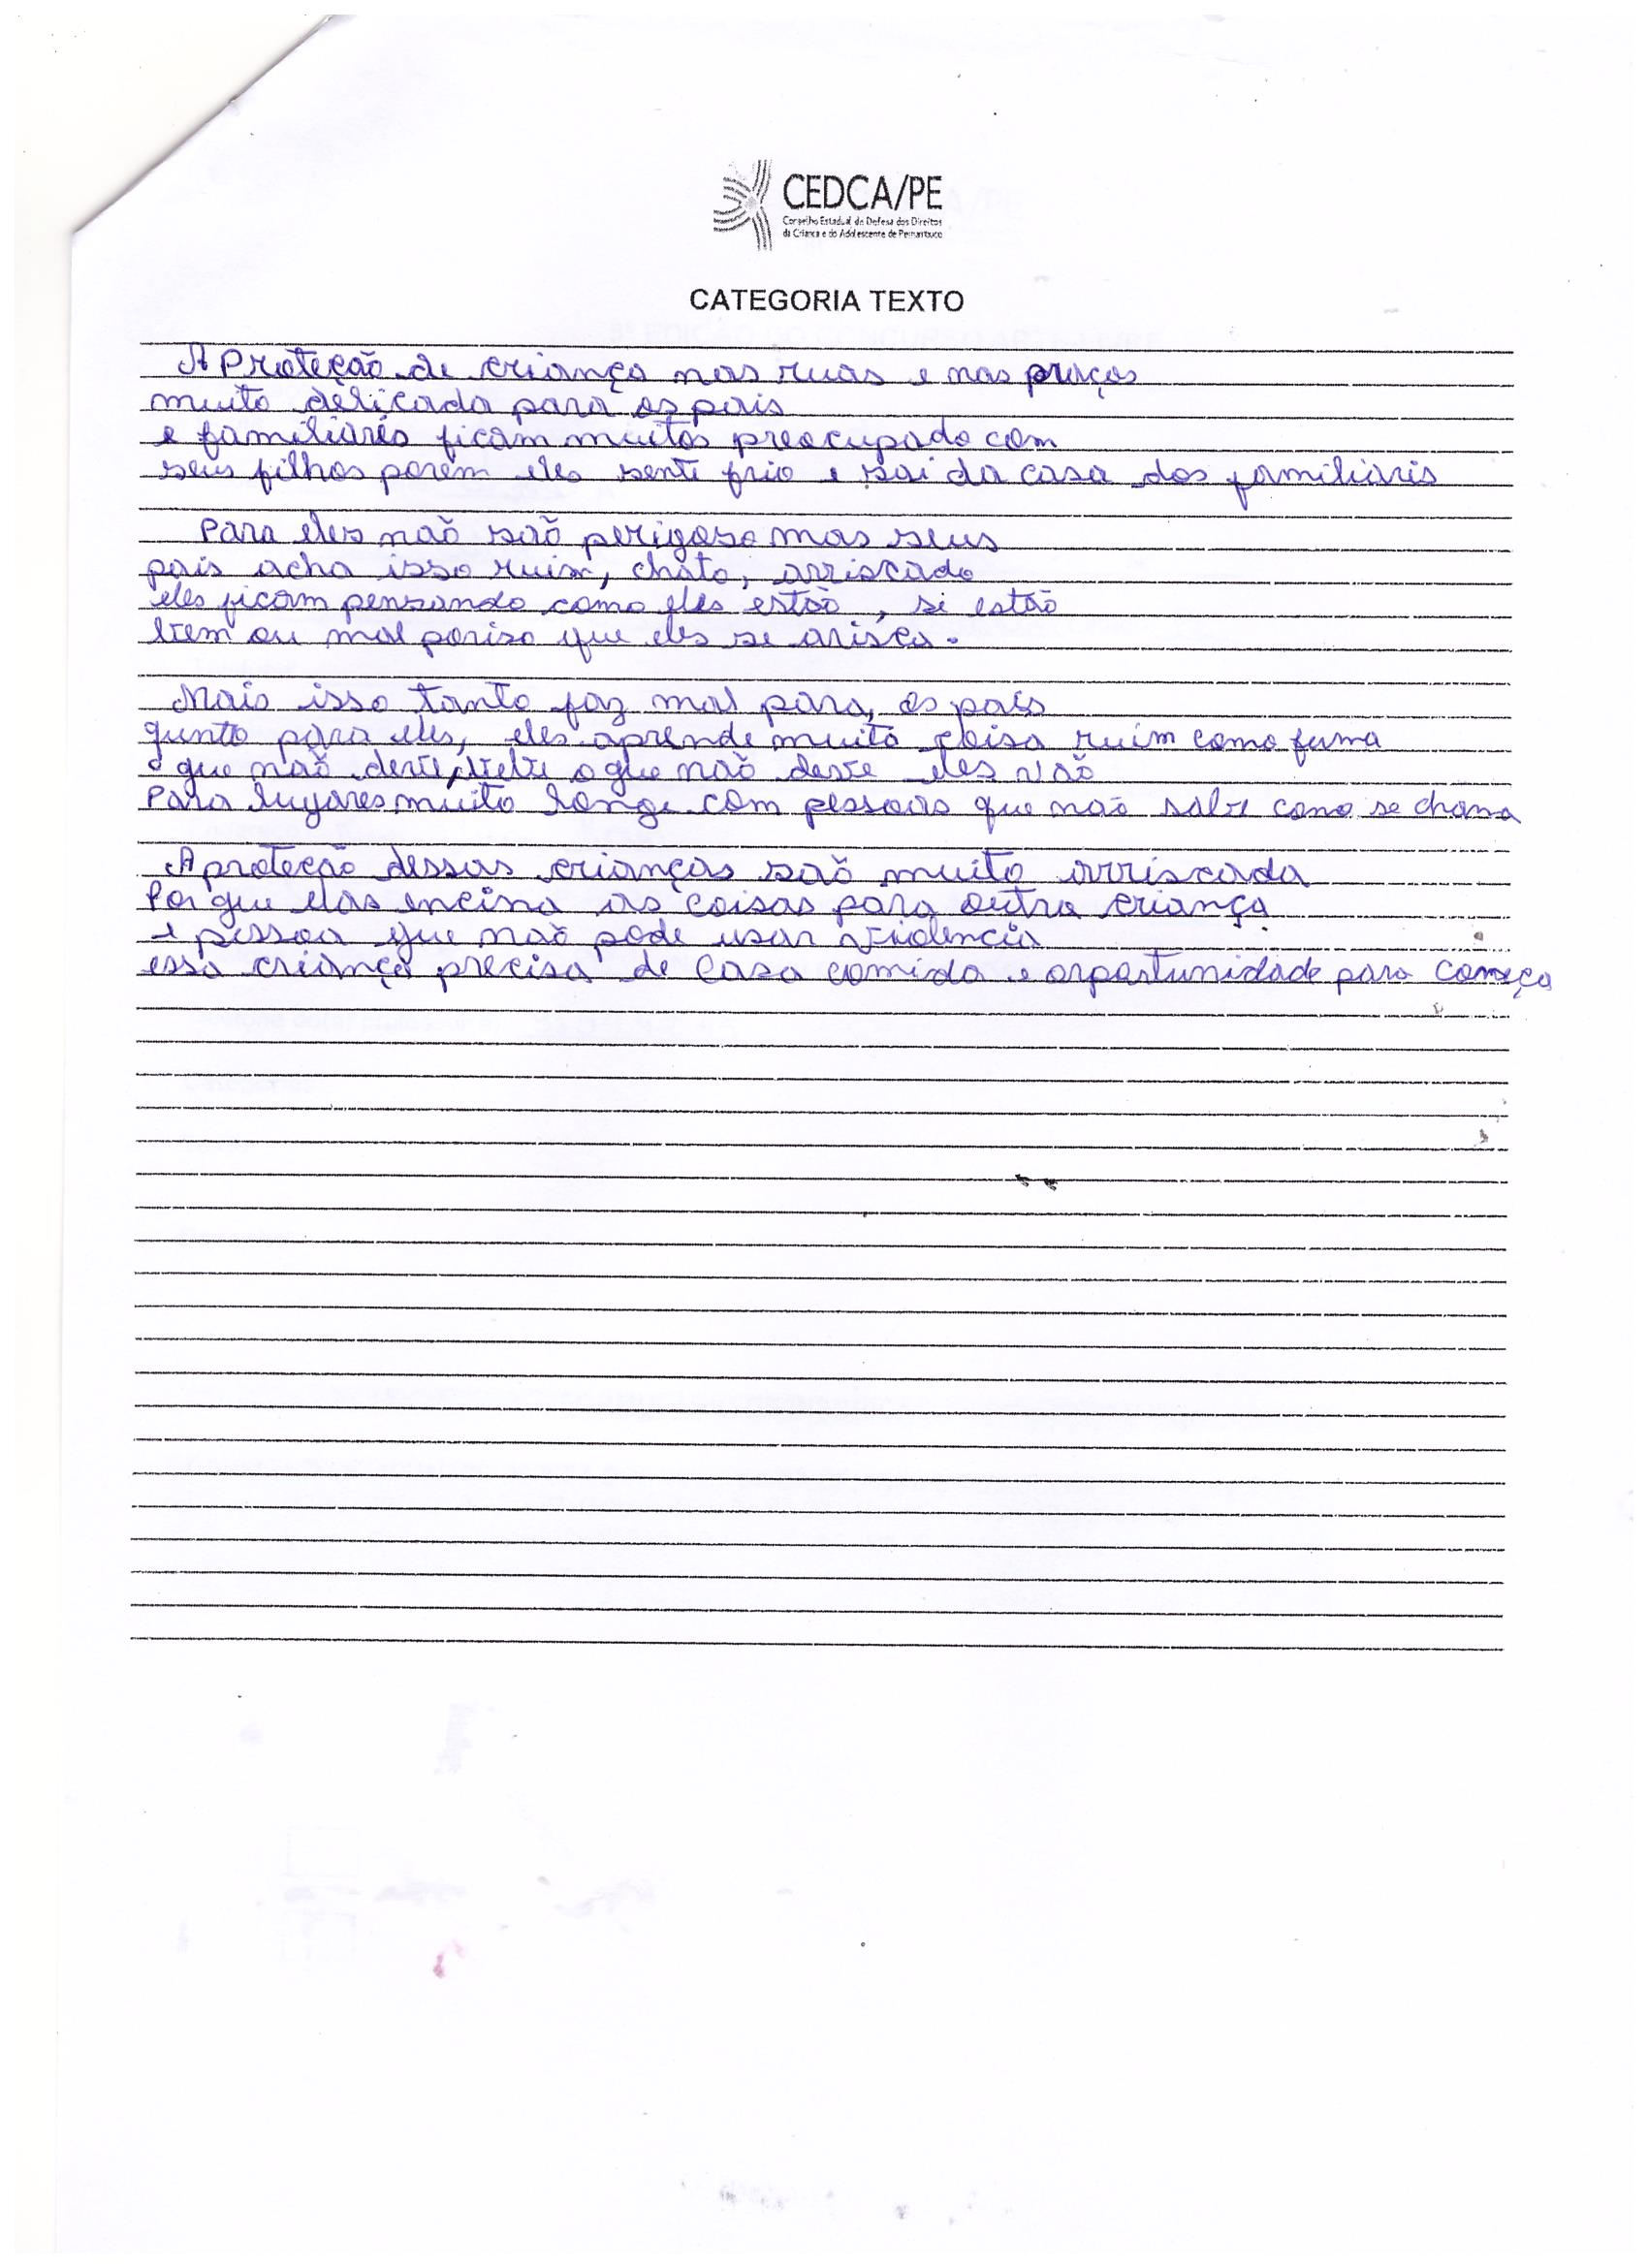 CEDCA/PE
Conselho Estadual de Defesa dos Direitos
da Criança e do Adolescente de Pernambuco
CATEGORIA TEXTO
A Proteção de criança nas ruas e nas praças
muito delicada para os pais
e familiáris ficam muitos preocupado com
seus filhos porem eles senti frio e sai da casa dos familiáris
Para eles não são perigoso mas seus
pais acha isso ruim, chato, arriscado
eles ficam pensando como eles estão, si estão
bem ou mal poriso que eles se arisca.
Mais isso tanto faz mal para, os pais
qunto para eles, eles aprende muito coisa ruim como fuma
o que não deve, bebe o que não deve eles vão
Para lugares muito longe com pessoas que não sabe como se chama
A proteção dessas crianças são muito arriscada
Por que elas encina as coisas para outra criança
e pessoa que não pode usar violencia
essa criança precisa de casa comida e orportunidade para começa